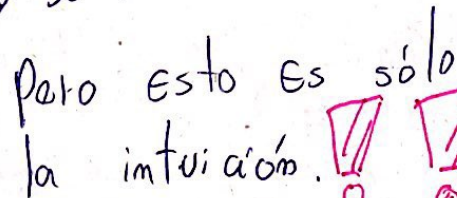 Pero esto Es sólo
la intuición. ! !